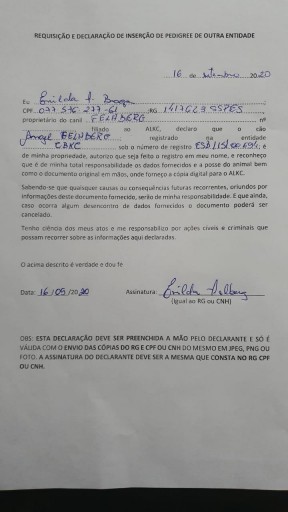 REQUISIÇÃO E DECLARAÇÃO DE INSERÇÃO DE PEDIGREE DE OUTRA ENTIDADE
16 de setembro 2020
Eu
CPF RG
proprietário do canil FELHBERG nº
filiado ao ALKC, declaro que o cão
Angel FELHBERG registrado na entidade
CBKC sob o número de registro e
de minha propriedade, autorizo que seja feito o registro em meu nome, e reconheço
que é de minha total responsabilidade os dados fornecidos e a posse do animal bem
como o documento original em mãos, onde forneço a cópia digital para o ALKC.
Sabendo-se que quaisquer causas ou consequências futuras recorrentes, oriundos por
informações deste documento fornecido, serão de minha responsabilidade. E que ainda,
caso ocorra algum desencontro de dados fornecidos o documento poderá ser
cancelado.
Tenho ciência dos meus atos e me responsabilizo por ações cíveis e criminais que
possam recorrer sobre as informações aqui declaradas.
O acima descrito é verdade e dou fé
Data: 16/09/2020 Assinatura:
(Igual ao RG ou CNH)
OBS: ESTA DECLARAÇÃO DEVE SER PREENCHIDA A MÃO PELO DECLARANTE E SÓ É
VÁLIDA COM O ENVIO DAS CÓPIAS DO RG E CPF OU CNH DO MESMO EM JPEG, PNG OU
FOTO. A ASSINATURA DO DECLARANTE DEVE SER A MESMA QUE CONSTA NO RG CPF
OU CNH.